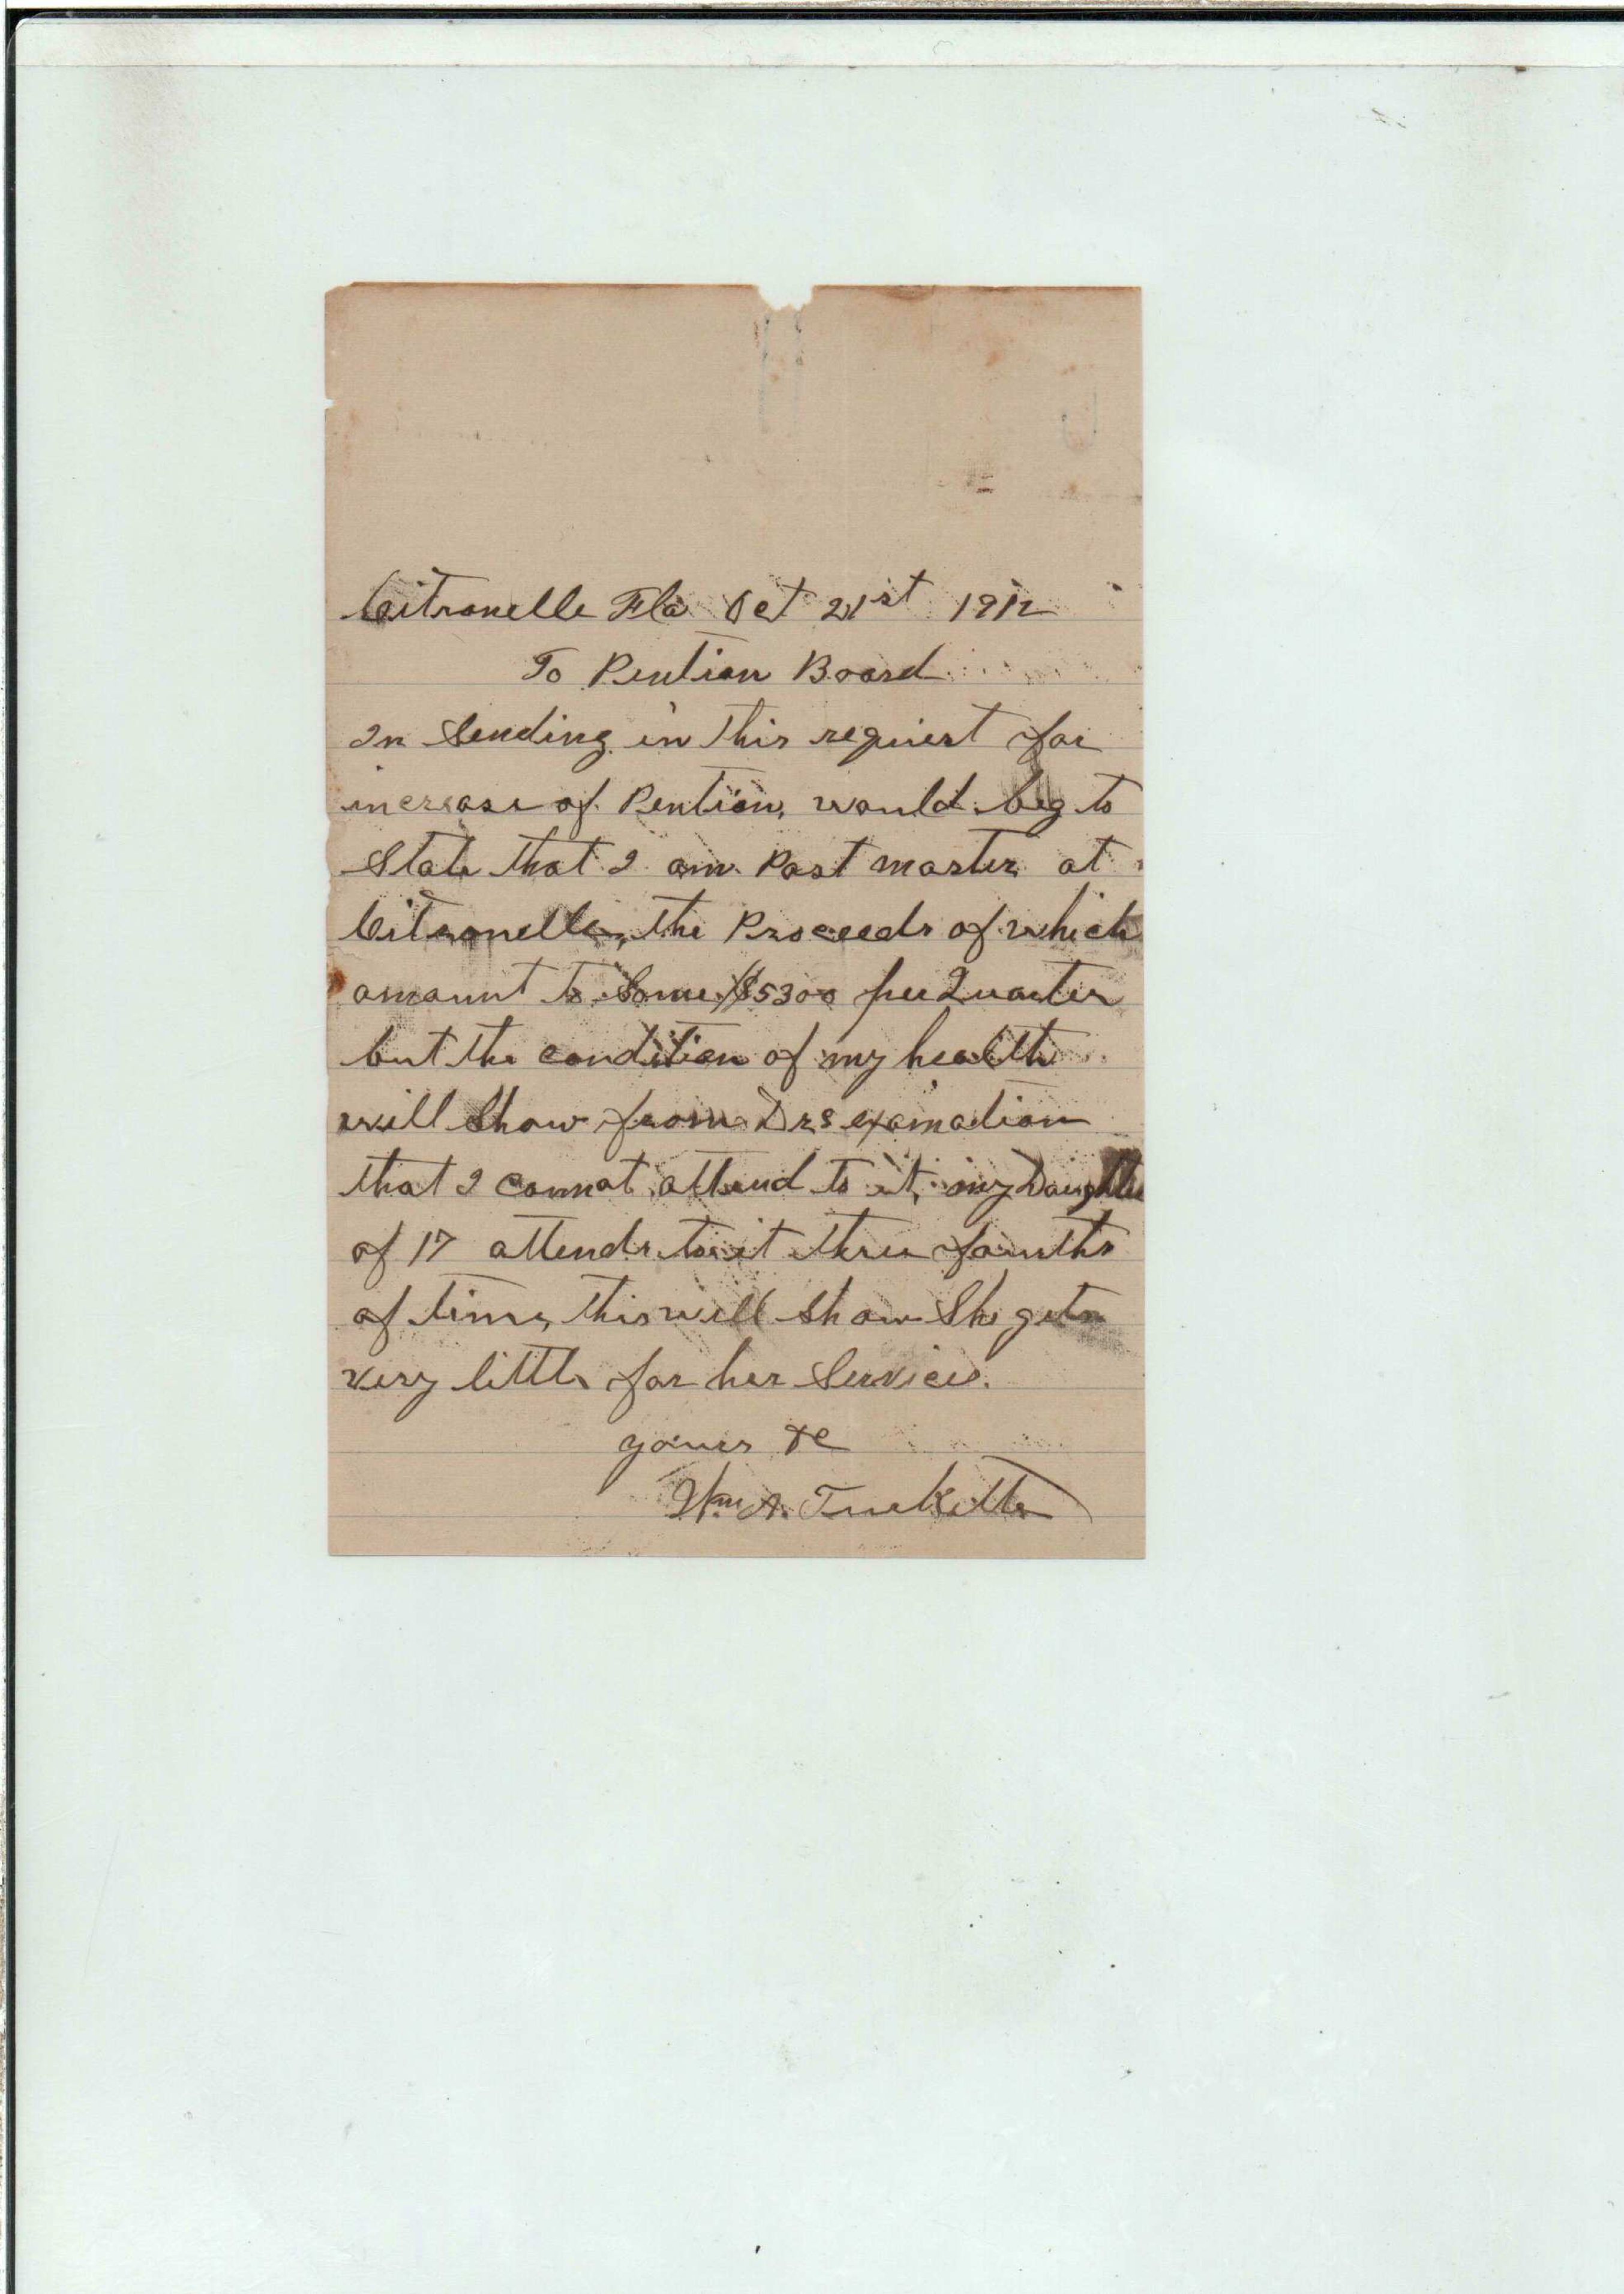 Citronelle Fla Oct 21st 1912
To Pention Board
In Sending in this requiest for
increase of Pention, would beg to
State that I am Post master at
Citronelle, the Proceeds of which
amount to Some $5300 per Quarter
but the condition of my health
will Show from Drs examation
that I cannot attend to it, my Daughter
of 17 attends to it three fourths
of time, this will show She gets
very little for her Services.
yours &c
Wm A.